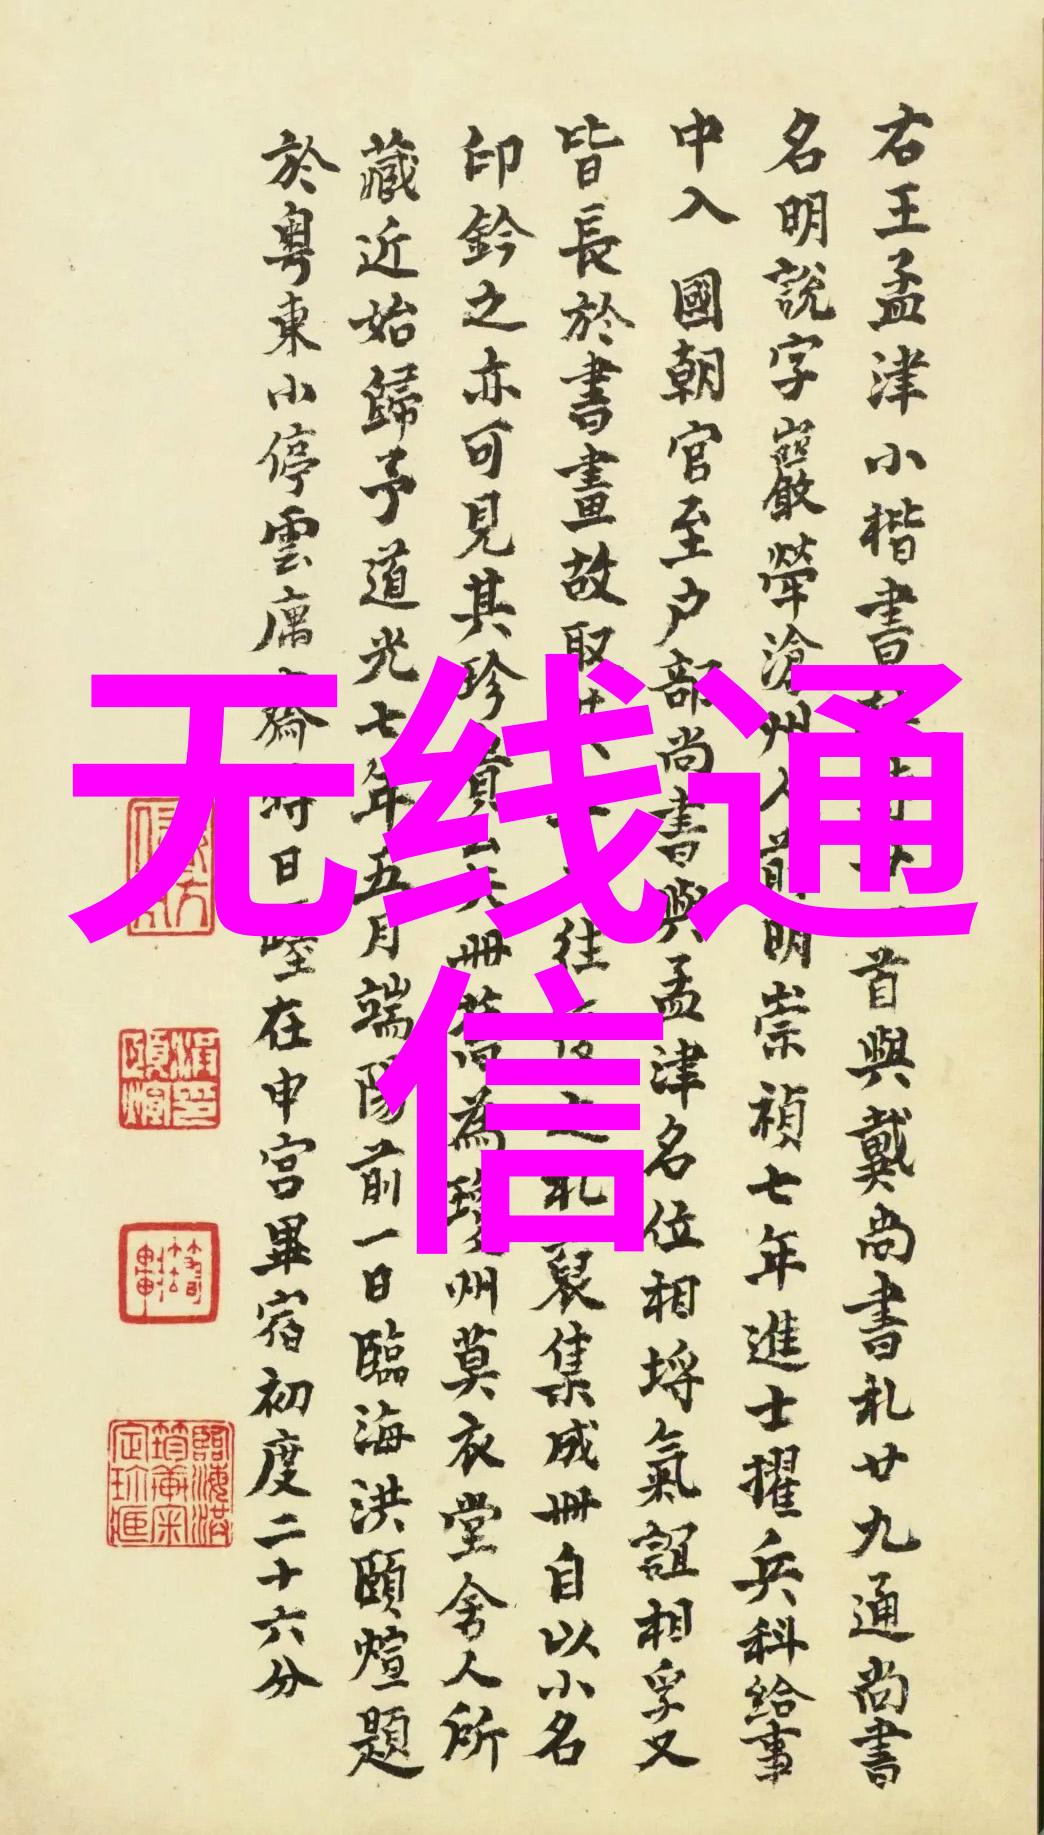 右王孟津小楷書首與戴尚書札廿九通尚書
名明說字巖犖滄州人前明崇禎七年進士擢兵科給事
中入國朝官至户部尚書與孟津名位相埒氣誼相孚又
皆長於書畫故取往之札裒集成冊自以小名
印鈐之亦可見其珍冊舊為州莫衣堂舍人所
藏近始歸予道光七年五月端陽前一日臨海洪頤煊題
於粵東小停雲庽齋時日躔在申宮畢宿初度二十六分
无线通
信